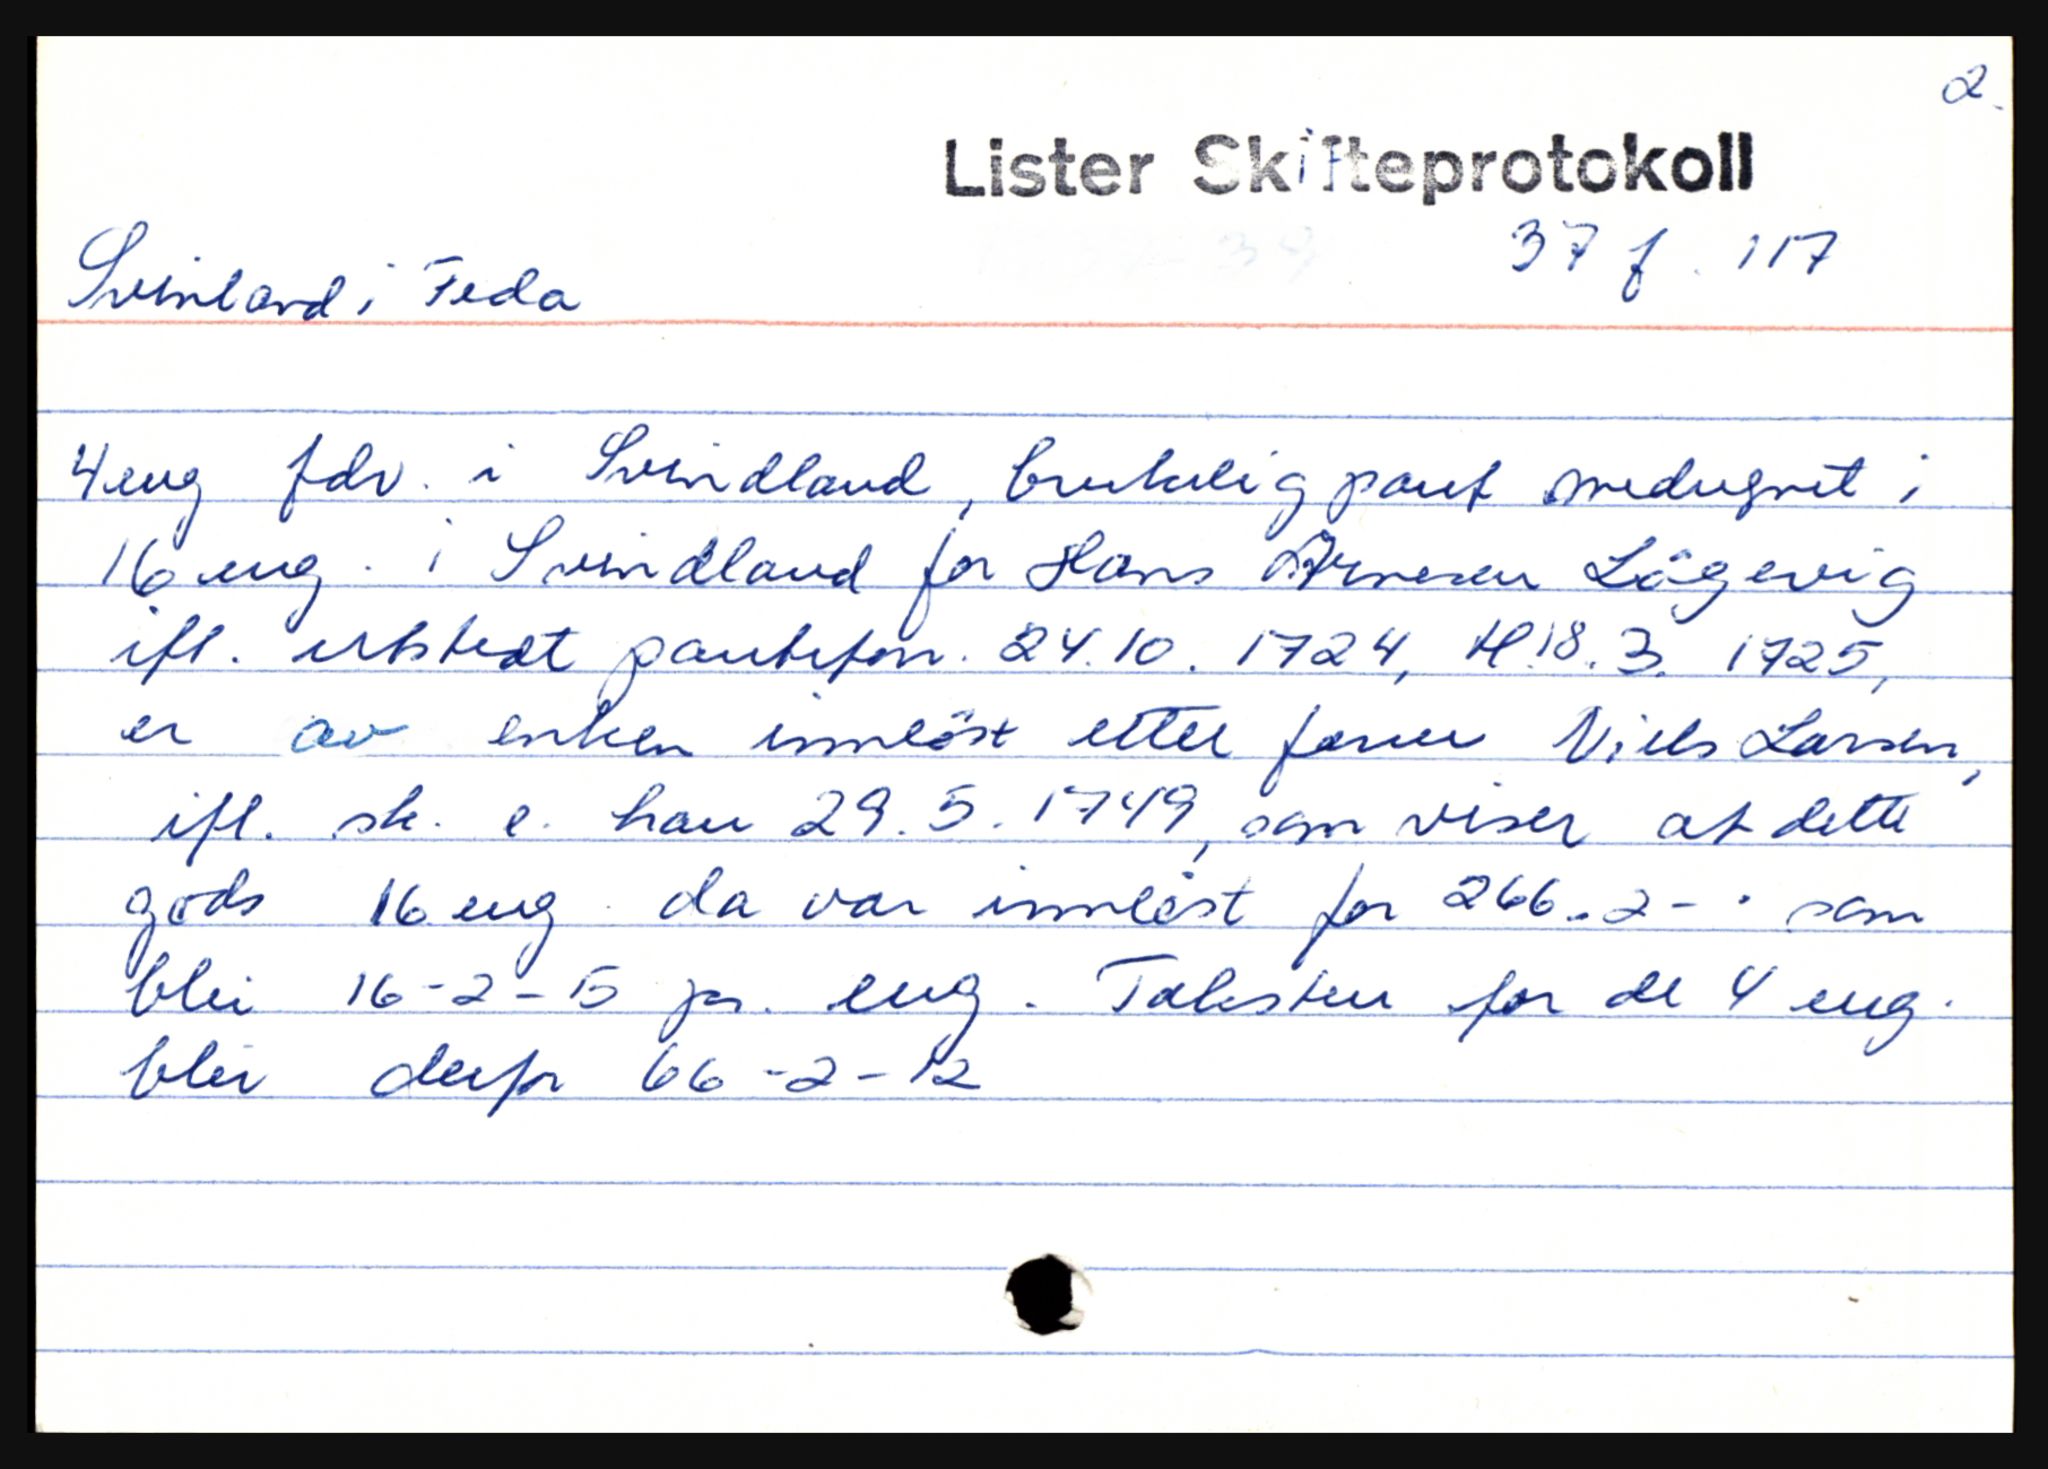 2.
Lister Skifteprotokoll
37 f. 117
Svinland i Feda
4 eug fdv. i Svindland, brukelig pant medregnet i
16 eug. i Svindland for Hans Arnesen Lögevig
ifl. utstedt panteforr. 24.10. 1724, tl. 18.3. 1725,
er av enken innlöst etter faren Niels Larsen,
ifl. sk. e. han 29.5.1749, som viser at dette
gods 16 eug. da var innlöst for 266-2-· som
blir 16-2-15 pr. eug. Taksten for de 4 eug.
blir derfor 66-2-12